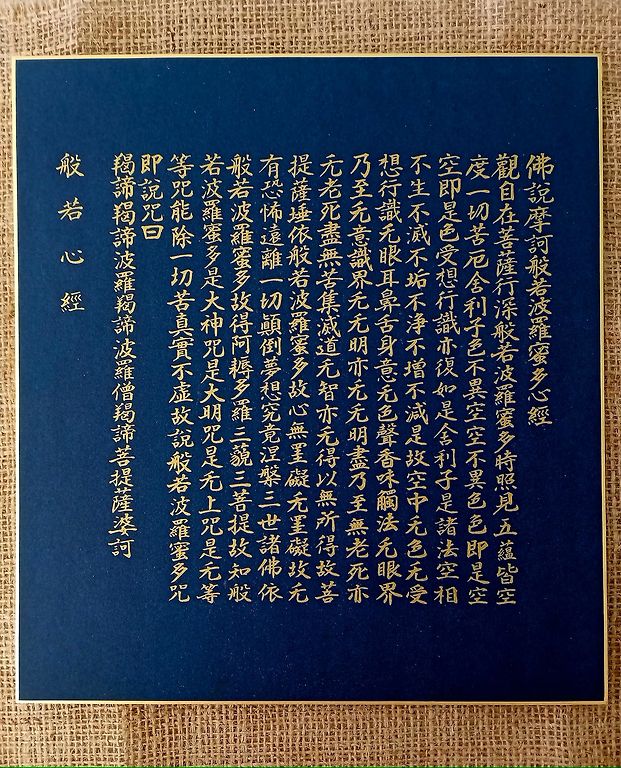 佛說摩訶般若波羅蜜多心經
觀自在菩薩行深般若波羅蜜多時照見五蘊皆空
度一切苦厄舍利子色不異空空不異色色即是空
空即是色受想行識亦復如是舍利子是諸法空相
不生不滅不垢不淨不增不減是故空中无色无受
想行識无眼耳鼻舌身意无色聲香味觸法无眼界
乃至无意識界无无明亦无无明盡乃至無老死亦
无老死盡無苦集滅道无智亦无得以無所得故菩
提薩埵依般若波羅蜜多故心無罣礙无罣礙故无
有恐怖遠離一切顛倒夢想究竟涅槃三世諸佛依
般若波羅蜜多故得阿耨多羅三藐三菩提故知般
若波羅蜜多是大神咒是大明咒是无上咒是无等
等咒能除一切苦真實不虛故說般若波羅蜜多咒
即說咒曰
羯諦羯諦波羅羯諦波羅僧羯諦菩提薩婆訶
般若心經